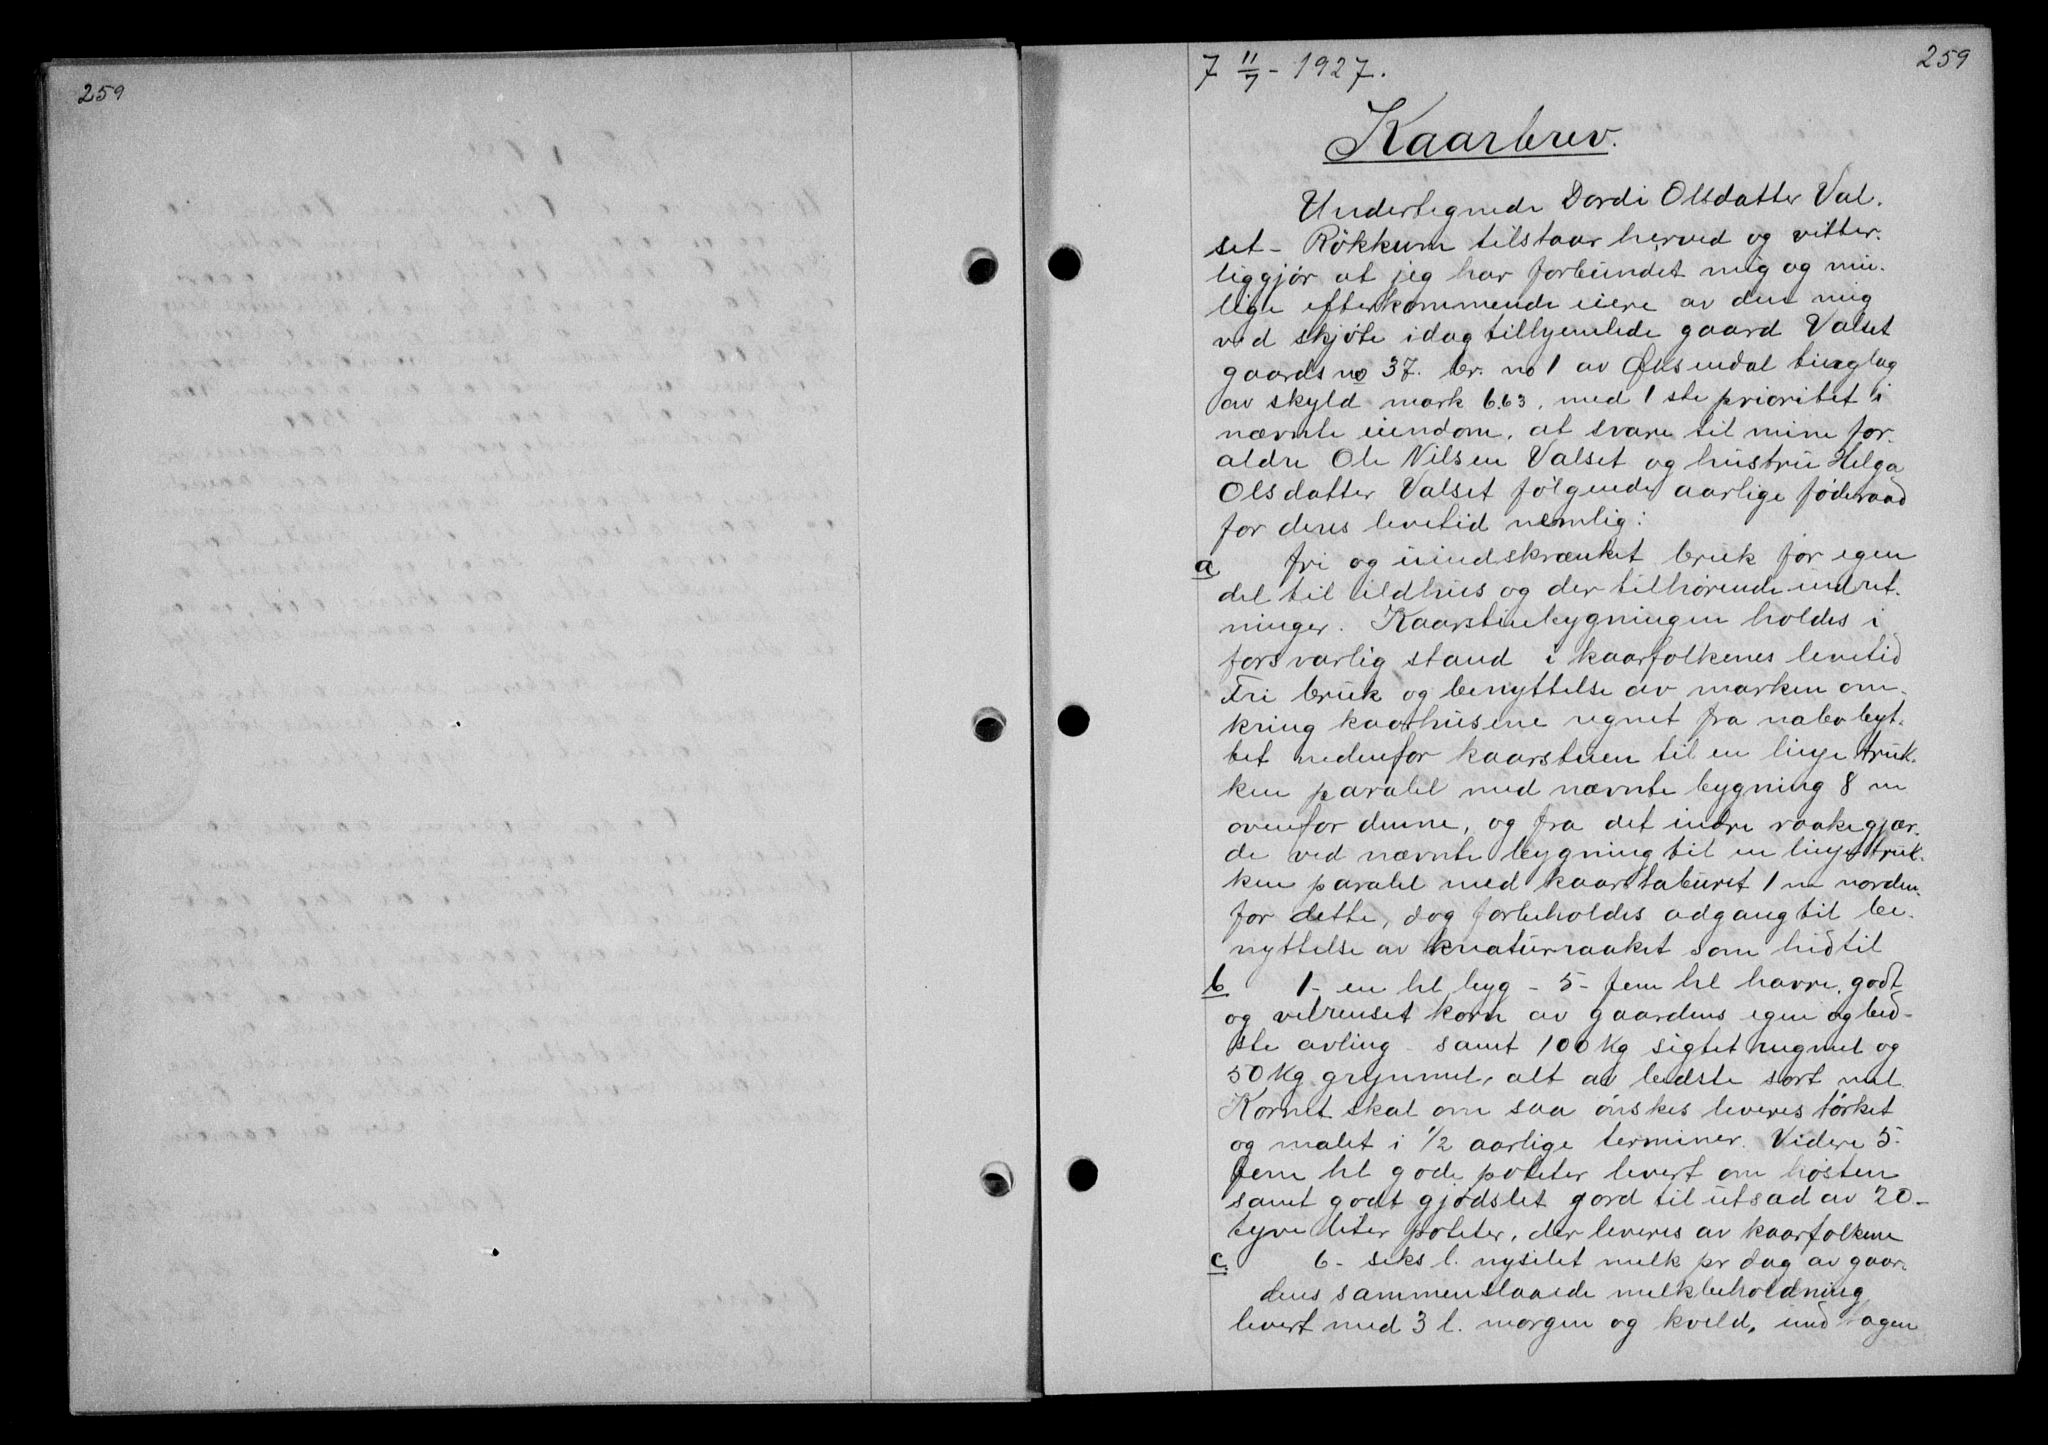 259
7 11/7 - 1927.
259
Kaarbrev.
Undertegnede Dordi Olsdatter Val-
set - Rökkum tilstaar herved og vitter-
liggjør at jeg har forbundet mig og mu-
lige efterkommende eiere av den mig
ved skjøte idag tilhjemlede gaard Valset
gaards no 37. br. no 1 av Øksendal tinglag
av skyld mark 6.63, med 1ste prioritet i
nævnte eiendom, at svare til mine for-
ældre Ole Nilsen Valset og hustru Helga
Olsdatter Valset følgende aarlige føderaad
for deres levetid nemlig:
a fri og uindskrænket bruk for egen
del til ildhus og der tilhørende indret-
ninger. Kaarstubygningen holdes i
forsvarlig stand i kaarfolkenes levetid
Fri bruk og benyttelse av marken om-
kring kaarhusene regnet fra nabobyt-
tet nedenfor kaarstuen til en linje truk-
ken paralel med nævnte bygning 8 m
ovenfor denne, og fra det indre raakegjær-
de ved nævnte bygning til en linje truk-
ken paralel med kaarstaburet 1 m norden-
for dette, dog forbeholdes adgang til be-
nyttelse av kreaturraaket som hidtil
b 1- en hl byg - 5- fem hl havre, godt
og velrenset korn av gaardens egen og bed-
ste avling - samt 100 Kg sigtet rugmel og
50 Kg grynmel, alt av bedste sort mel.
Kornet skal om saa ønskes leveres tørket
og malet i 1/2 aarlige terminer. Videre 5-
fem hl gode poteter levert om høsten
samt godt gjødslet jord til utsæd av 20-
tyve liter poteter, der leveres av kaarfolkene
c. 6- seks l. nysilet melk pr dag av gaar-
dens sammenslaaede melkbeholdning
levert med 3 l. morgen og kveld, undtagen